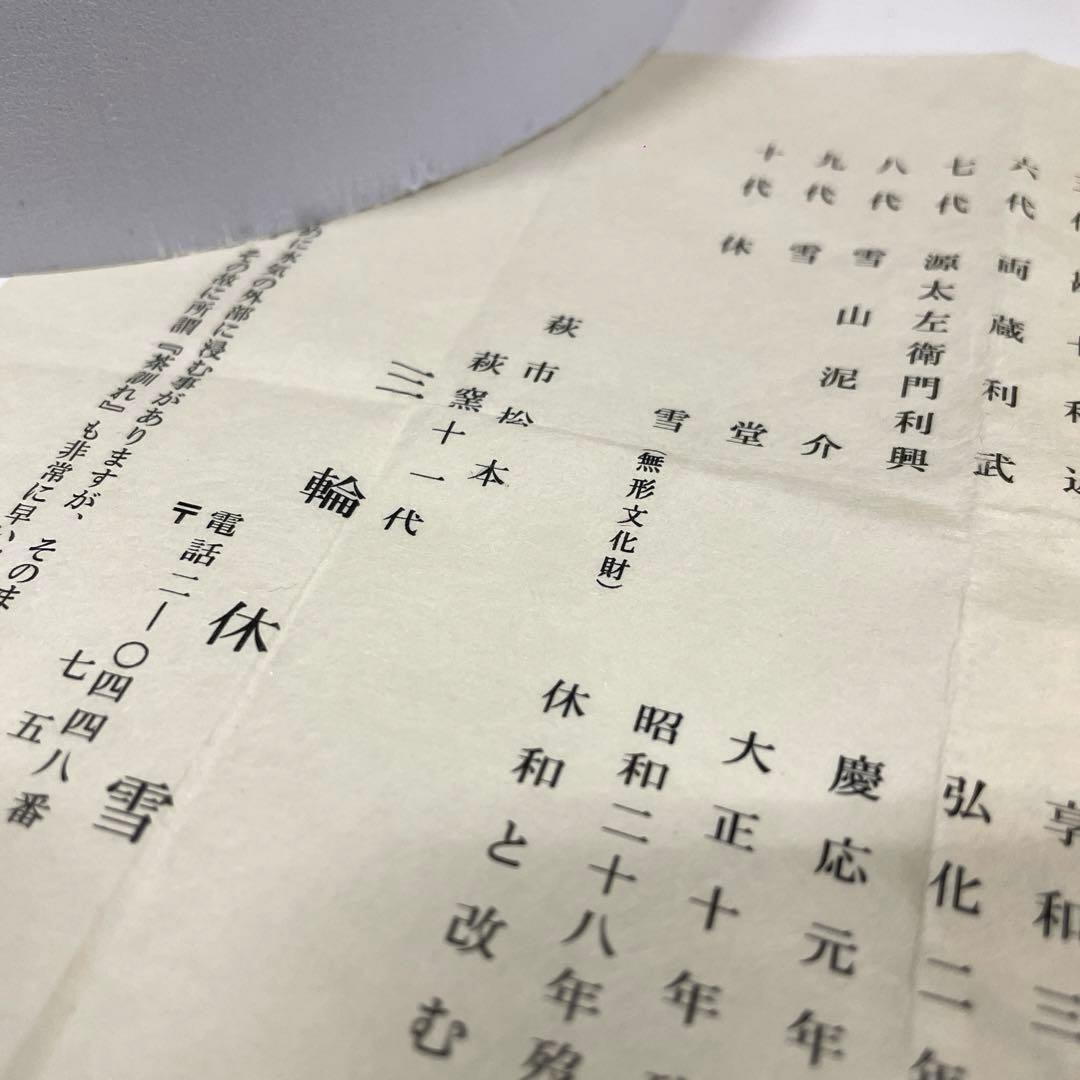 利
六代 両蔵利武 弘化二年
享和三
七代 源太左衛門利興 慶応元年
八代 雪山泥介 大正十年
九代 雪堂 昭和二十八年歿
十代 休雪(無形文化財) 休和と改む
萩市松本
萩窯十一代
三輪休雪
電話二―〇四四八番
〒七五
めに水気の外部に浸む事がありますが、そのま
その故に所謂『茶馴れ』も非常に早い